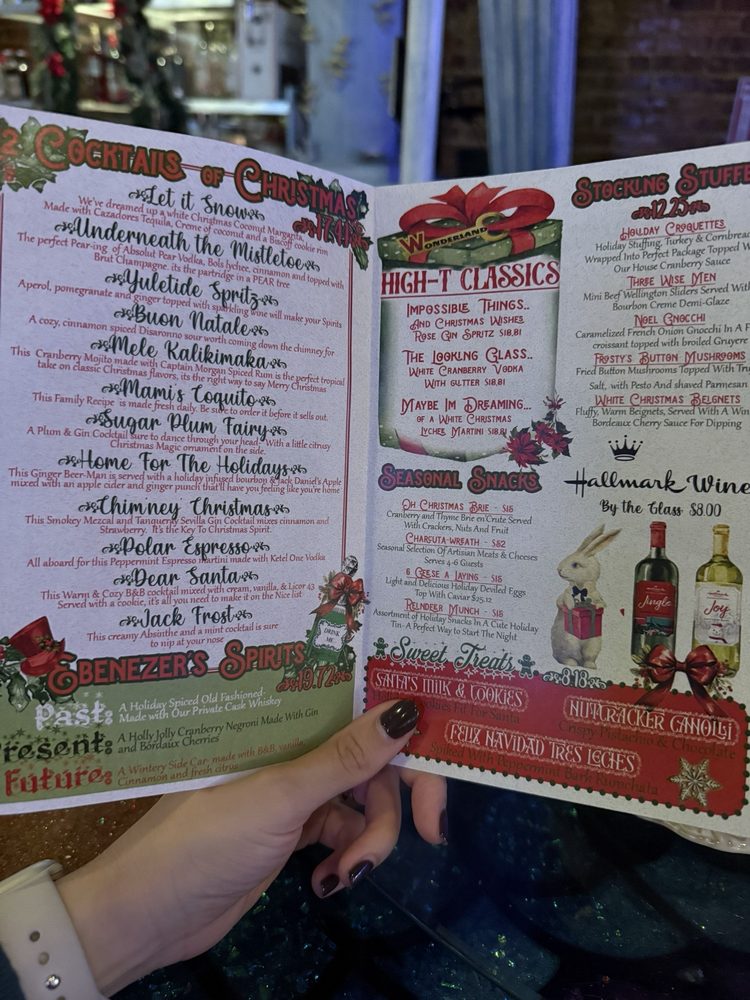 12 Cocktails of Christmas
17.41
Let it Snow
We've dreamed up a white Christmas Coconut Margarita,
Made with Cazadores Tequila, Creme of coconut and a Biscoff cookie rim
Underneath the Mistletoe
The perfect Pear-ing of Absolut Pear Vodka, Bols lychee, cinnamon and topped with
Brut Champagne, its the partridge in a PEAR tree
Yuletide Spritz
Aperol, pomegranate and ginger topped with sparkling wine will make your Spirits
Buon Natale
A cozy, cinnamon spiced Disaronno sour worth coming down the chimney for
Mele Kalikimaka
This Cranberry Mojito made with Captain Morgan Spiced Rum is the perfect tropical
take on classic Christmas flavors, its the right way to say Merry Christmas
Mami's Coquito
This Family Recipe is made fresh daily. Be sure to order it before it sells out.
Sugar Plum Fairy
A Plum & Gin Cocktail sure to dance through your head. With a little citrusy
Christmas Magic ornament on the side.
Home For The Holidays
This Ginger Beer-Man is served with a holiday infused bourbon & Jack Daniel's Apple
mixed with an apple cider and ginger punch that'll have you feeling like you're home
Chimney Christmas
This Smokey Mezcal and Tanqueray Sevilla Gin Cocktail mixes cinnamon and
Strawberry. It's the Key To Christmas Spirit.
Polar Espresso
All aboard for this Peppermint Espresso martini made with Ketel One Vodka
Dear Santa
This Warm & Cozy B&B cocktail mixed with cream, vanilla, & Licor 43
Served with a cookie, it's all you need to make it on the Nice list
Jack Frost
This creamy Absinthe and a mint cocktail is sure
to nip at your nose
DRINK ME
Ebenezer's Spirits
19.72
Past:
A Holiday Spiced Old Fashioned-
Made with Our Private Cask Whiskey
resent:
A Holly Jolly Cranberry Negroni Made With Gin
and Bordaux Cherries
Future:
A Wintery Side Car- made with B&B, vanilla,
Cinnamon and fresh citrus
Wonderland
High-T Classics
Impossible Things..
and Christmas Wishes
Rose Gin Spritz $18.81
The Looking Glass..
White Cranberry Vodka
With glitter $18.81
Maybe I'm Dreaming..
of a White Christmas
Lychee Martini $18.81
Seasonal Snacks
Oh Christmas Brie - $16
Cranberry and Thyme Brie en Crute Served
With Crackers, Nuts And Fruit
Charcuta-wreath - $82
Seasonal Selection Of Artisian Meats & Cheeses
Serves 4-6 Guests
6 Geese a Laying - $16
Light and Delicious Holiday Deviled Eggs
Top With Caviar $25.12
Reindeer Munch - $18
Assortment of Holiday Snacks In A Cute Holiday
Tin- A Perfect Way to Start The Night
Stocking Stuffe
12.25
Holiday Croquettes
Holiday Stuffing, Turkey & Cornbread
Wrapped Into Perfect Package Topped W
Our House Cranberry Sauce
Three Wise Men
Mini Beef Wellington Sliders Served With
Bourbon Creme Demi-Glaze
Noel Gnocchi
Caramelized French Onion Gnocchi In A F
croissant topped with broiled Gruyere
Frosty's Button Mushrooms
Fried Button Mushrooms Topped With Tru
Salt, with Pesto And shaved Parmesan
White Christmas Beignets
Fluffy, Warm Beignets, Served With A Win
Bordeaux Cherry Sauce For Dipping
Hallmark Wine
By the Glass $8.00
Jingle
Joy
Sweet Treats
8.18
Santa's Milk & Cookies
Cookies Fit For Santa
Nutcracker Canolli
Crispy Pistachio & Chocolate
Feliz Navidad Tres Leches
Spiked With Peppermint Bark Rumchata